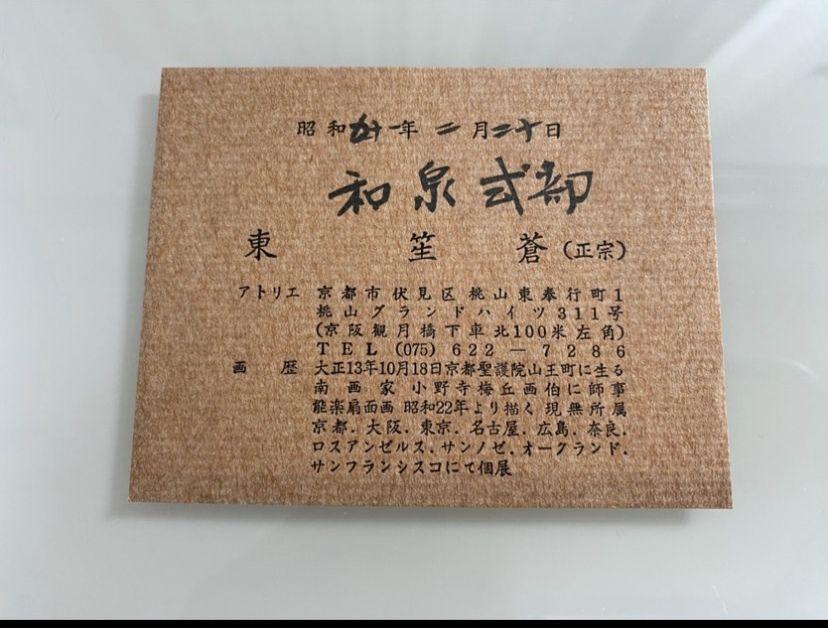 昭和五十一年二月二十日
和泉式部
東笙蒼(正宗)
アトリエ 京都市伏見区桃山東奉行町1
桃山グランドハイツ311号
(京阪観月橋下車北100米左角)
TEL (075) 622-7286
画歴 大正13年10月18日京都聖護院山王町に生る
南画家 小野寺梅丘画伯に師事
能楽扇面画 昭和22年より描く 現無所属
京都.大阪.東京.名古屋.広島.奈良.
ロスアンゼルス.サンノゼ.オークランド.
サンフランシスコにて個展